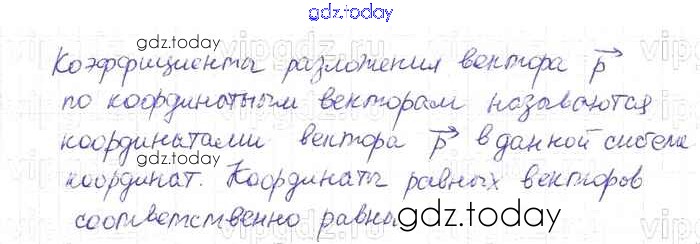 gdz.today
Коэффициенты разложения вектора p⃗
gdz.today
по координатным векторам называются
координатами вектора p⃗ в данной системе
gdz.today
координат. Координаты равных векторов
соответственно равны
gdz.today